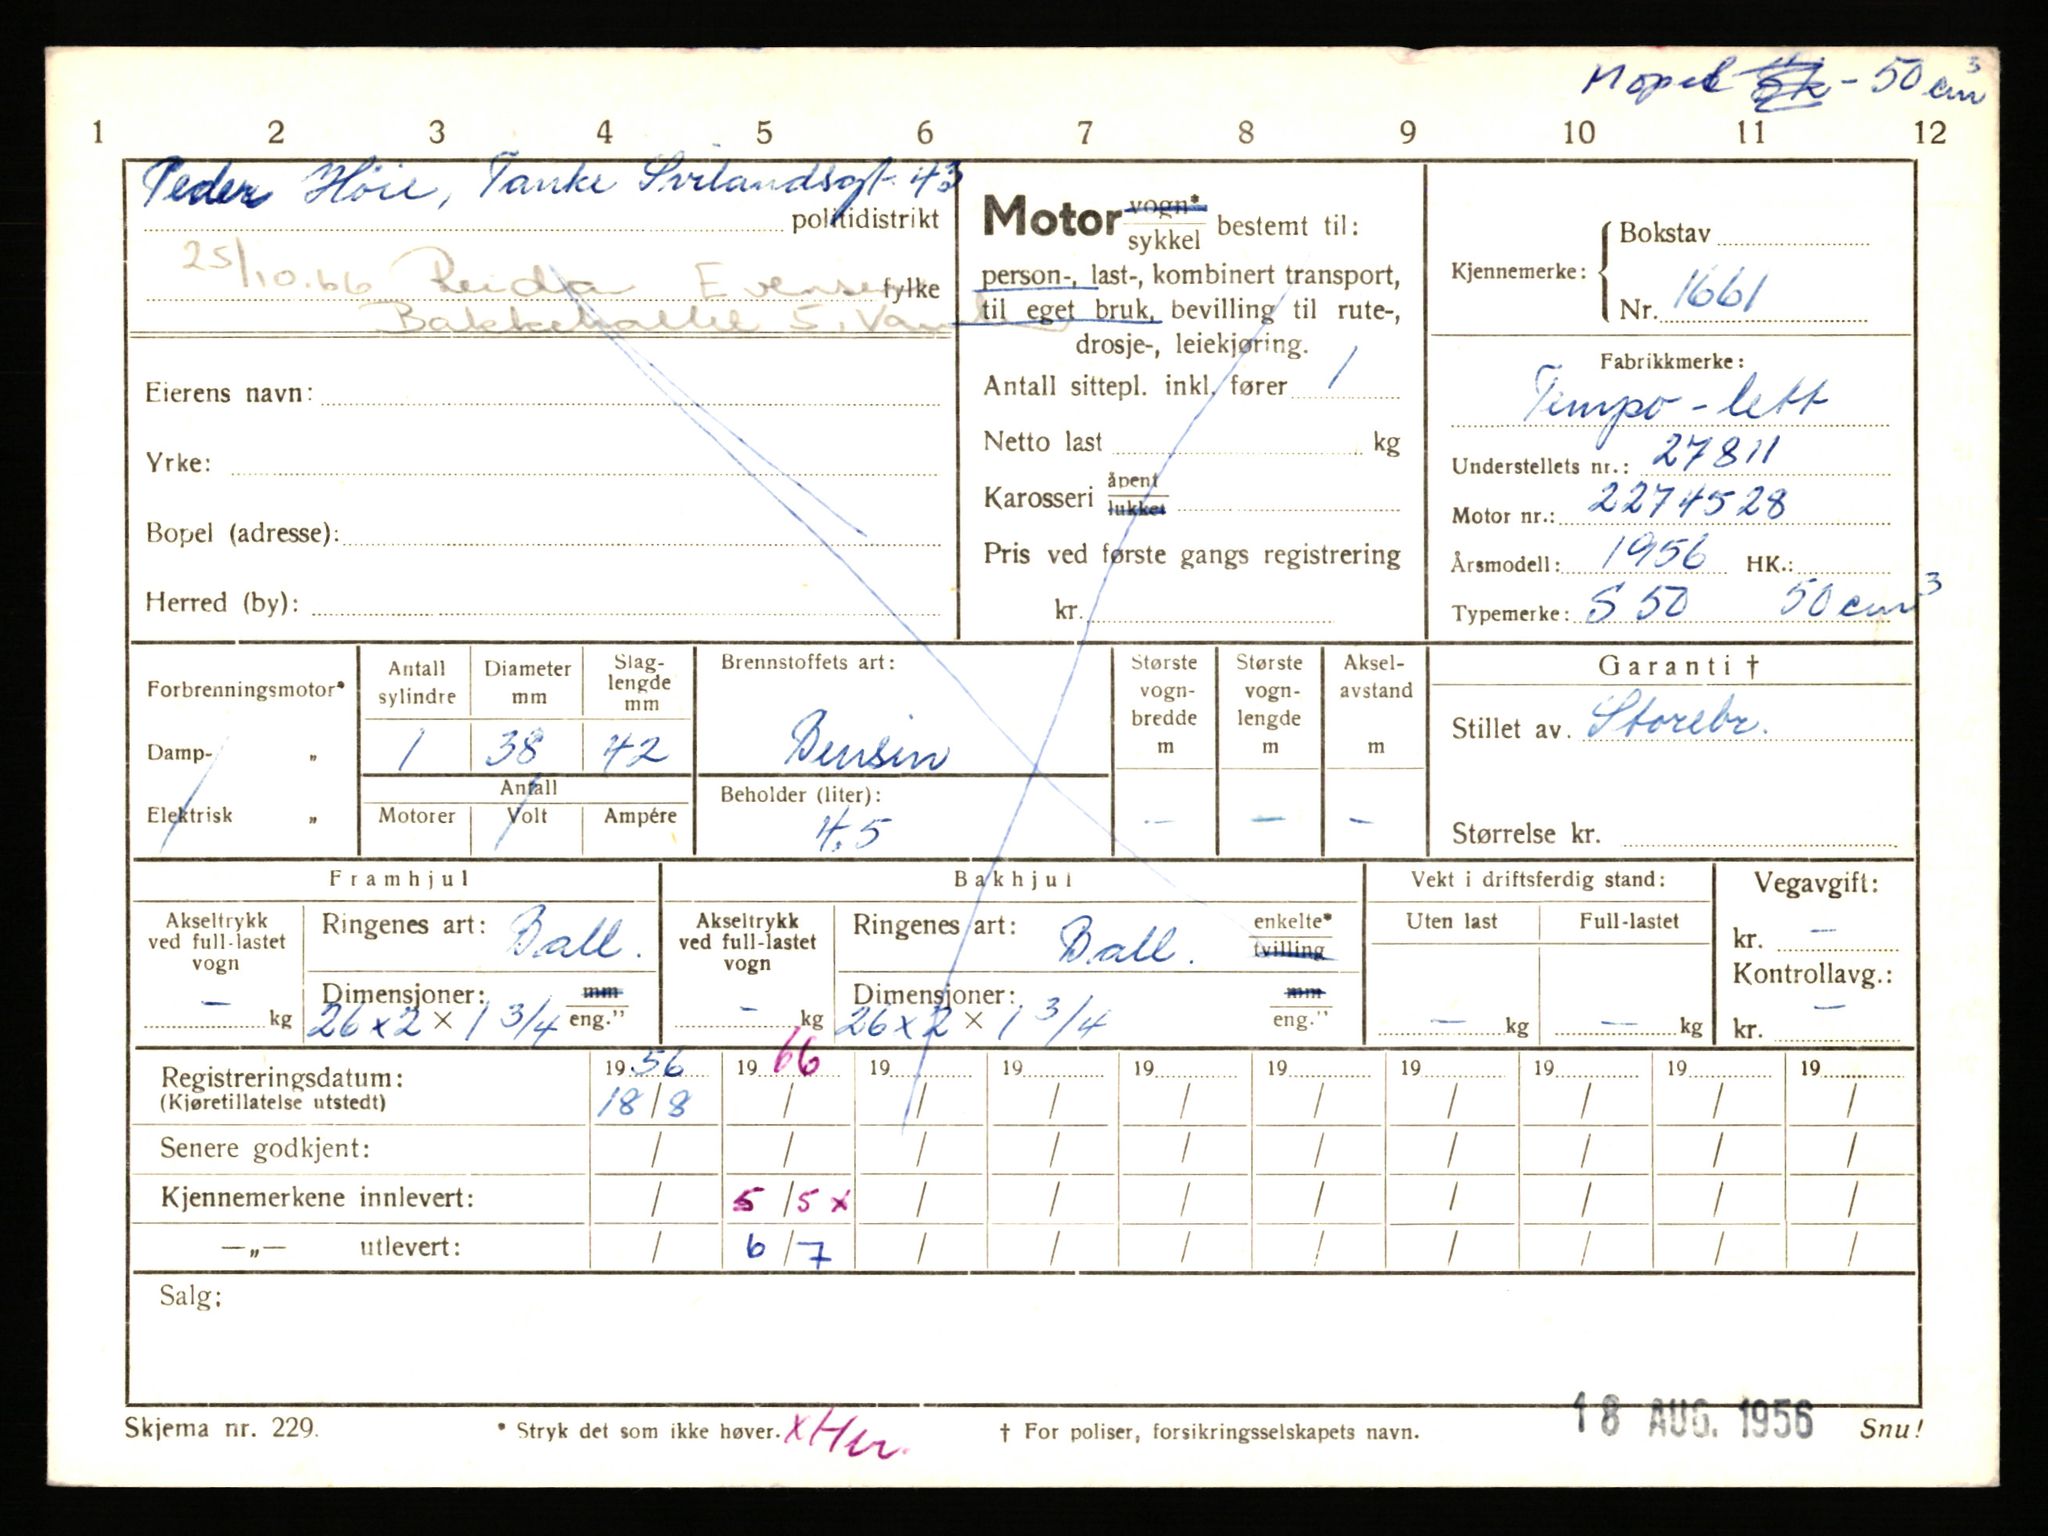 Moped - 50 cm³
1 2 3 4 5 6 7 8 9 10 11 12
Peder Höie, Tanke Svilandsgt. 43
politidistrikt
25/10.66 Reidar Evensen
fylke
Bakkehallet 5,
Eierens navn:
Yrke:
Bopel (adresse):
Herred (by):
Motor vogn* / sykkel bestemt til:
person-, last-, kombinert transport,
til eget bruk, bevilling til rute-,
drosje-, leiekjøring.
Antall sittepl. inkl. fører 1
Netto last kg
Karosseri åpent / lukket
Pris ved første gangs registrering
kr.
Kjennemerke: Bokstav
Nr. 1661
Fabrikkmerke:
Tempo - lett
Understellets nr.: 27811
Motor nr.: 2274528
Årsmodell: 1956 HK.:
Typemerke: S 50 50 cm³
Forbrenningsmotor*
Damp- „
Elektrisk „
Antall sylindre 1
Diameter mm 38
Slag-lengde mm 42
Antall
Motorer Volt Ampére
Brennstoffets art:
Bensin
Beholder (liter):
4.5
Største vogn-bredde m —
Største vogn-lengde m —
Aksel-avstand m —
Garanti †
Stillet av Storebr.
Størrelse kr.
Framhjul
Akseltrykk ved full-lastet vogn
— kg
Ringenes art: Ball.
Dimensjoner: mm / eng."
26 x 2 x 1 3/4
Bakhjul
Akseltrykk ved full-lastet vogn
— kg
Ringenes art: Ball.
enkelte* / tvilling
Dimensjoner: mm / eng."
26 x 2 x 1 3/4
Vekt i driftsferdig stand:
Uten last Full-lastet
— kg — kg
Vegavgift:
kr. —
Kontrollavg.:
kr. —
Registreringsdatum: 19 56 19 66 19 19 19 19 19 19 19 19
(Kjøretillatelse utstedt) 18/8 / / / / / / / / /
Senere godkjent: / / / / / / / / / /
Kjennemerkene innlevert: / 5/5 x / / / / / / / /
—„— utlevert: / 6/7 / / / / / / / /
Salg:
Skjema nr. 229.
* Stryk det som ikke høver.
x Her.
† For poliser, forsikringsselskapets navn.
18 AUG. 1956
Snu!